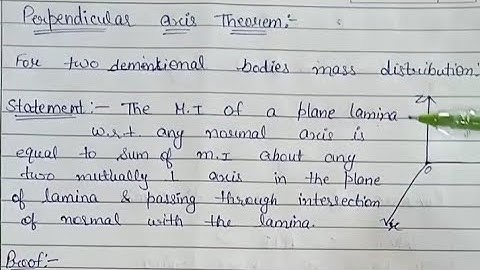 Perpendicular axis Theorem:-
For two demintional bodies mass distribution:
Statement:- The M.I of a plane lamina
w.r.t. any normal axis is
equal to sum of m.I about any
two mutually ⊥ axis in the plane
of lamina & passing through intersection
of normal with the lamina.
Z
O
x
Proof:-